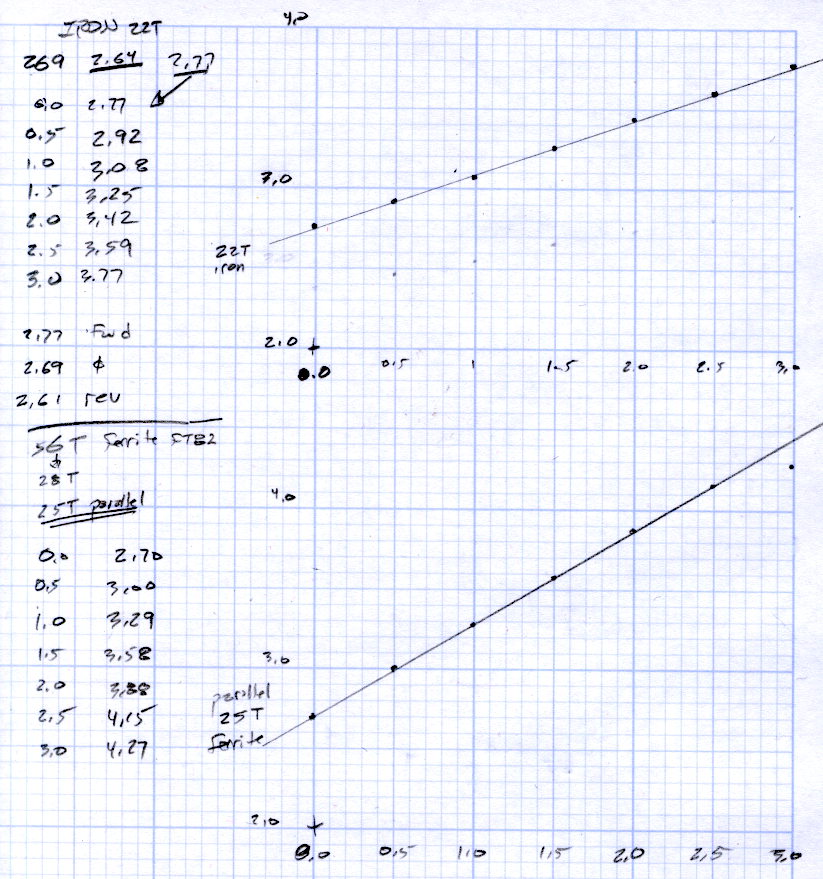 IRON 22T
269 2.64 2.77
0.0 2.77
0.5 2.92
1.0 3.08
1.5 3.25
2.0 3.42
2.5 3.59
3.0 3.77
2.77 Fwd
2.69 ϕ
2.61 rev
56T Ferrite FT82
28T
25T parallel
0.0 2.70
0.5 3.00
1.0 3.29
1.5 3.58
2.0 3.88
2.5 4.15
3.0 4.27
4.0
3.0
22T
iron
2.0
0.0 0.5 1 1.5 2.0 2.5 3.0
4.0
3.0
parallel
25T
Ferrite
2.0
0.0 0.5 1.0 1.5 2.0 2.5 3.0